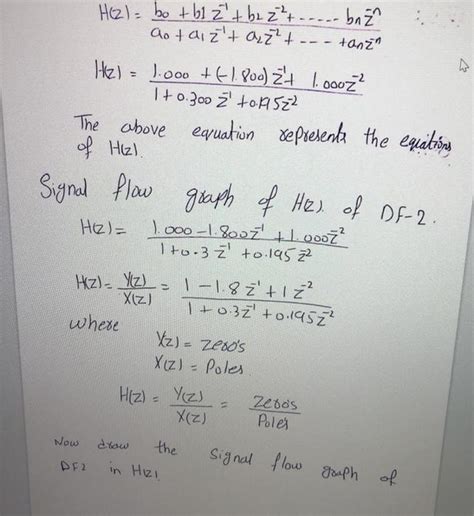 H(z) = b0 + b1 z⁻¹ + b2 z⁻² + ----- bn z⁻ⁿ
a0 + a1 z⁻¹ + a2 z⁻² + --- + an z⁻ⁿ
H(z) = 1.000 + (-1.800) z⁻¹ + 1.000 z⁻²
1 + 0.300 z⁻¹ + 0.195 z⁻²
The above equation represents the equations
of H(z).
Signal flow graph of H(z) of DF-2.
H(z) = 1.000 - 1.800 z⁻¹ + 1.000 z⁻²
1 + 0.3 z⁻¹ + 0.195 z⁻²
H(z) = Y(z) = 1 - 1.8 z⁻¹ + 1 z⁻²
X(z) 1 + 0.3 z⁻¹ + 0.195 z⁻²
where
Y(z) = zero's
X(z) = Poles
H(z) = Y(z) = Zero's
X(z) Poles
Now draw the Signal flow graph of
DF2 in H(z)